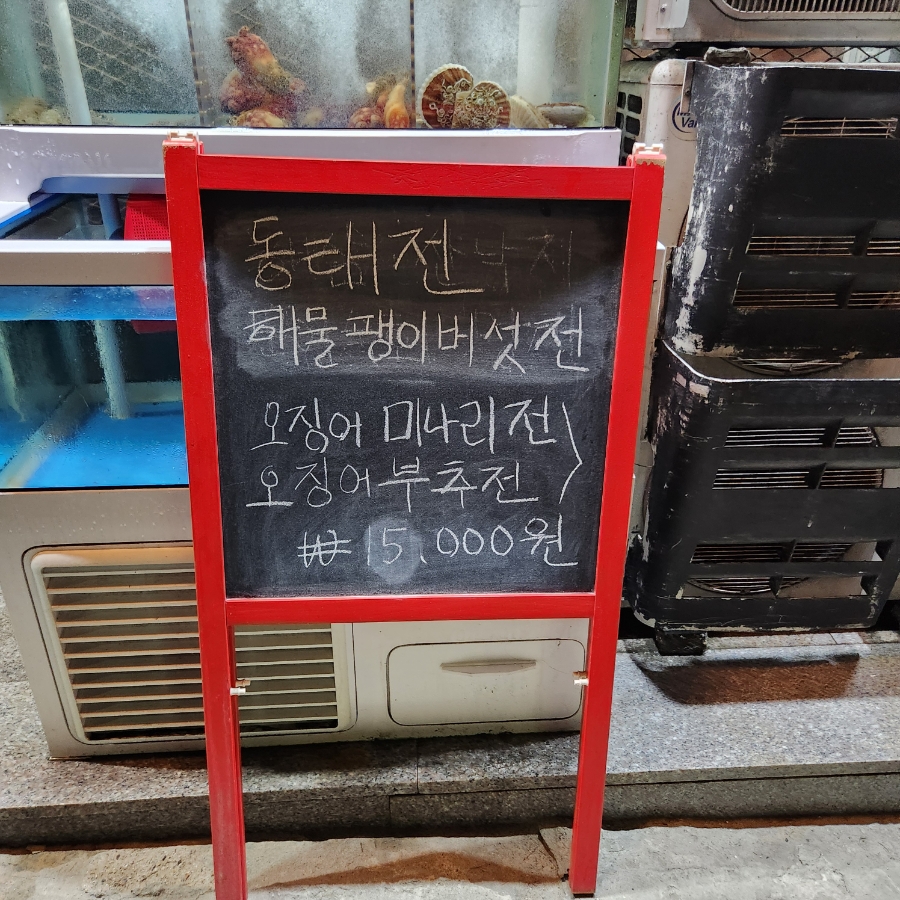 동태전
해물팽이버섯전
오징어 미나리전
오징어 부추전
₩ 15,000원